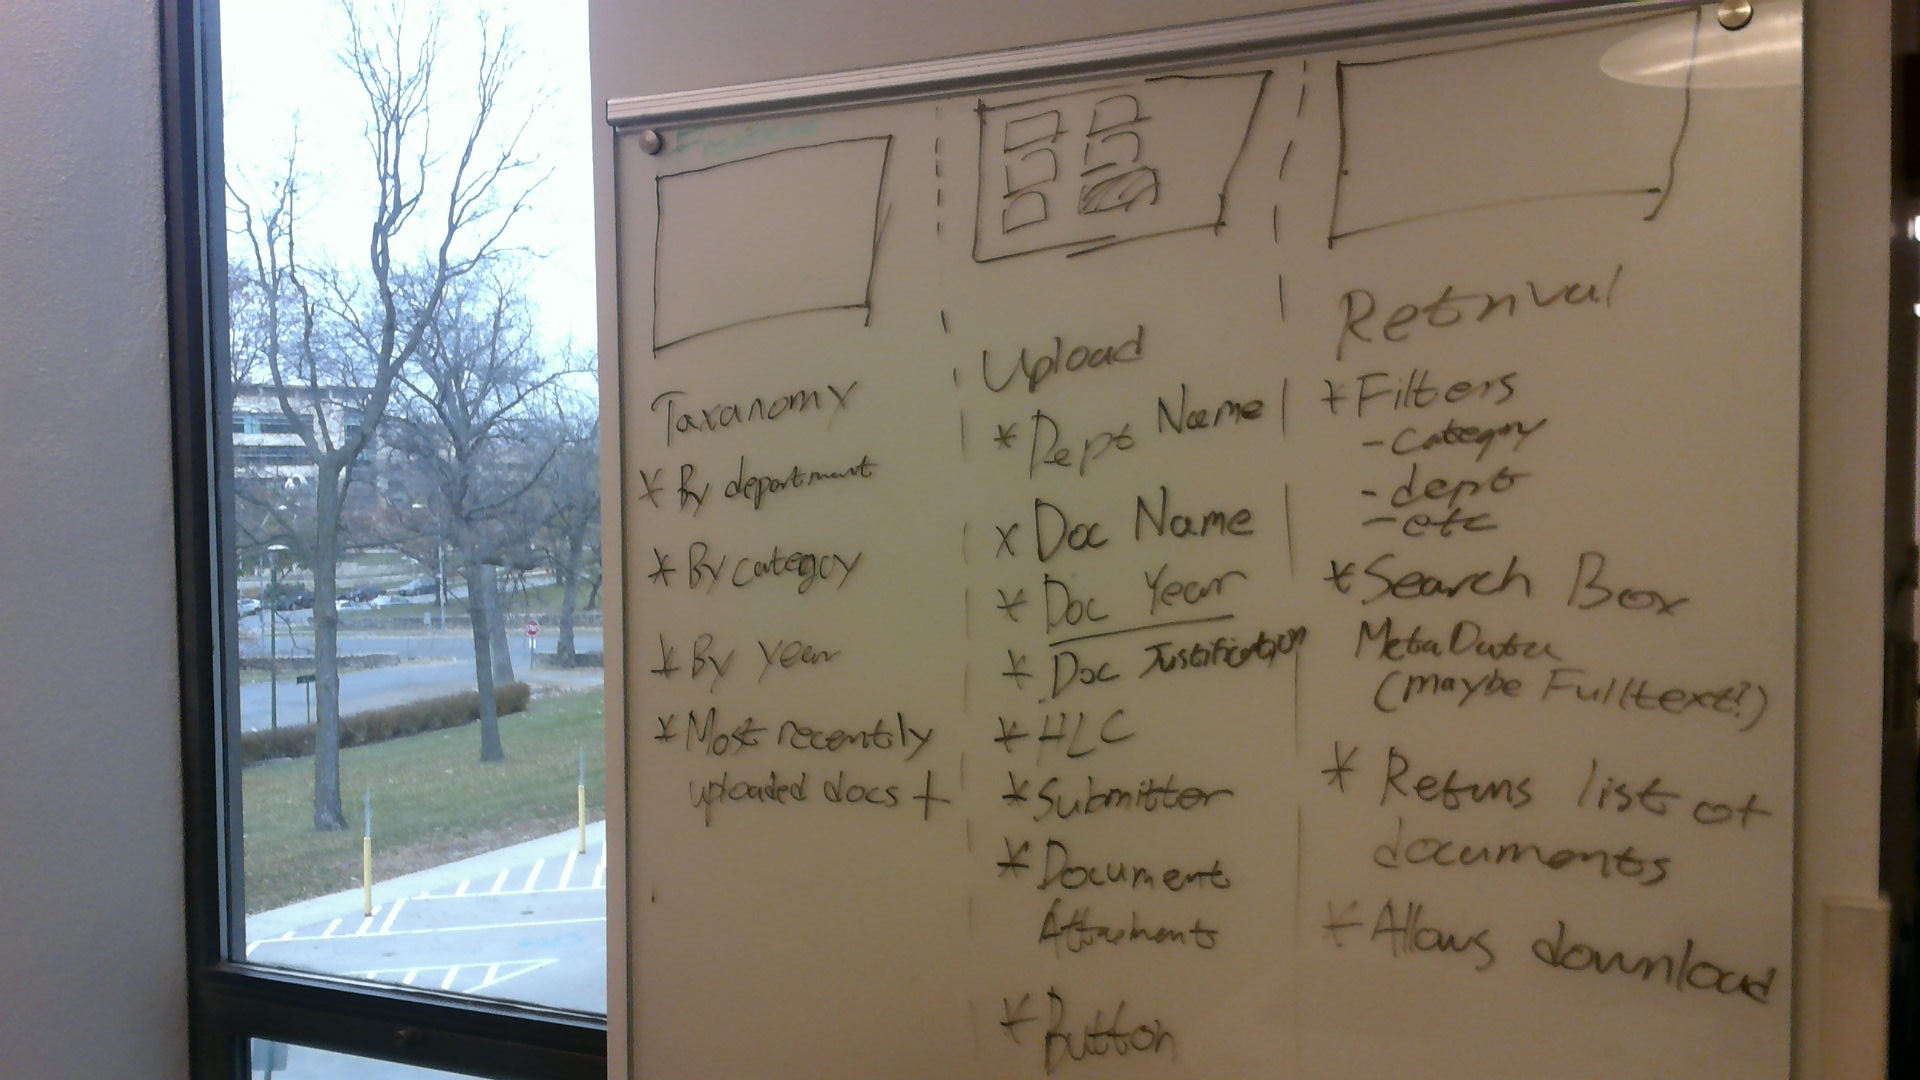 Taxanomy
* By department
* By category
* By year
* Most recently
uploaded docs +
Upload
* Dept Name
x Doc Name
* Doc Year
* Doc Justification
* HLC
* Submitter
* Document
Attachment
* Button
Retrival
* Filters
- category
- dept
- etc
* Search Box
MetaData
(maybe Fulltext?)
* Returns list of
documents
* Allows download